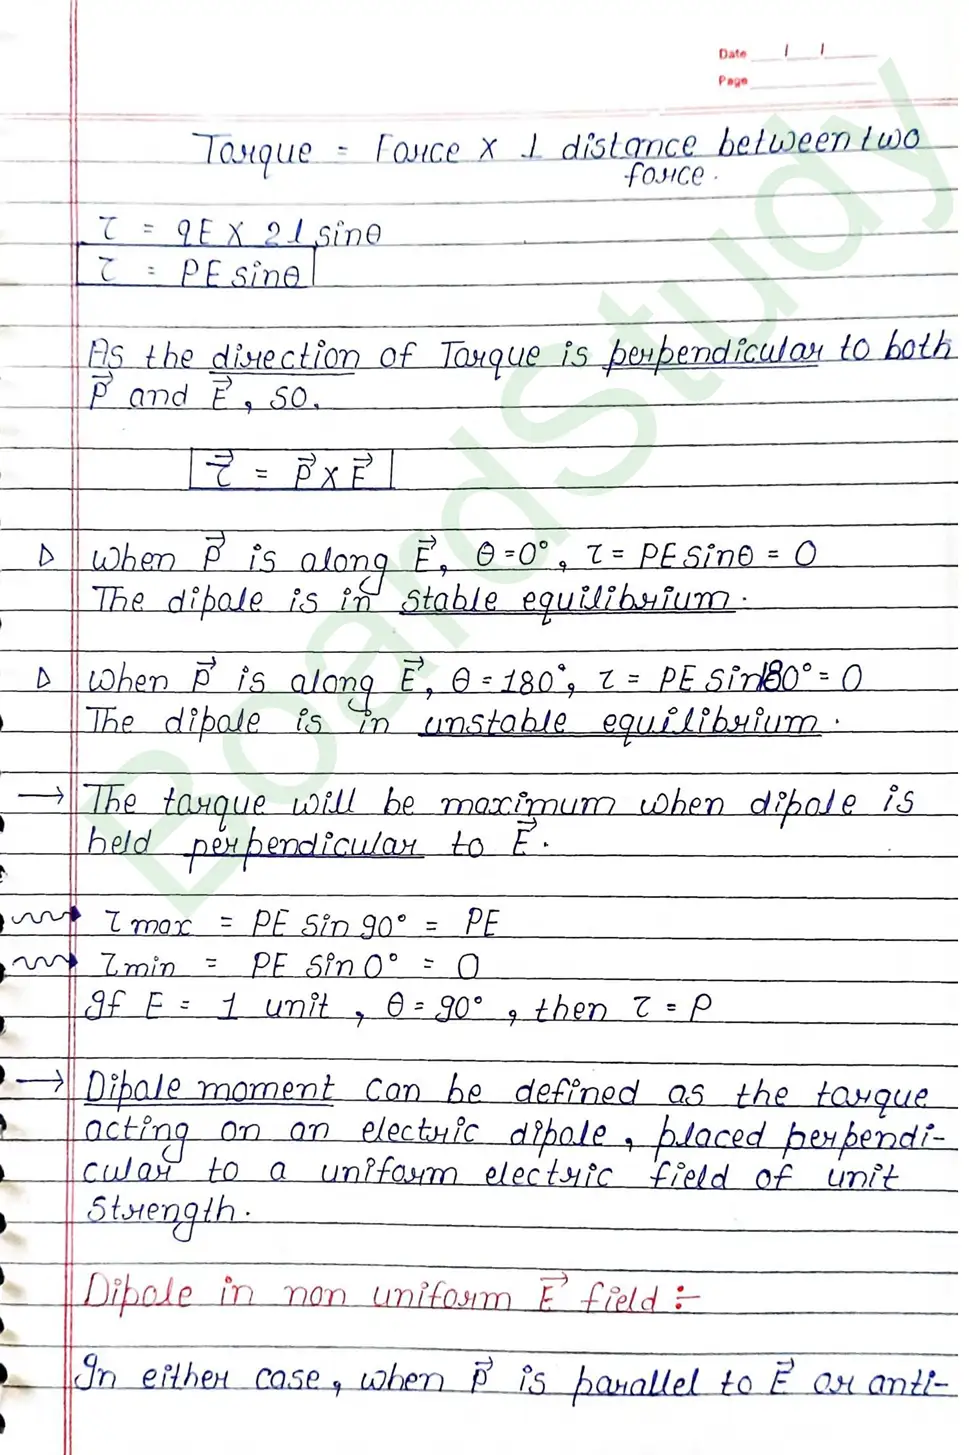 Date / /
Page
Torque = Force × ⊥ distance between two
force.
τ = qE × 2l sinθ
τ = PE sinθ
As the direction of Torque is perpendicular to both
P⃗ and E⃗, so,
τ⃗ = P⃗ × E⃗
▷ When P⃗ is along E⃗, θ = 0°, τ = PE sinθ = 0
The dipole is in stable equilibrium.
▷ When P⃗ is along E⃗, θ = 180°, τ = PE sin180° = 0
The dipole is in unstable equilibrium.
→ The torque will be maximum when dipole is
held perpendicular to E⃗.
τ max = PE sin 90° = PE
τ min = PE sin 0° = 0
If E = 1 unit, θ = 90°, then τ = P
→ Dipole moment can be defined as the torque
acting on an electric dipole, placed perpendi-
cular to a uniform electric field of unit
strength.
Dipole in non uniform E⃗ field :-
In either case, when P⃗ is parallel to E⃗ or anti-
BoardStudy